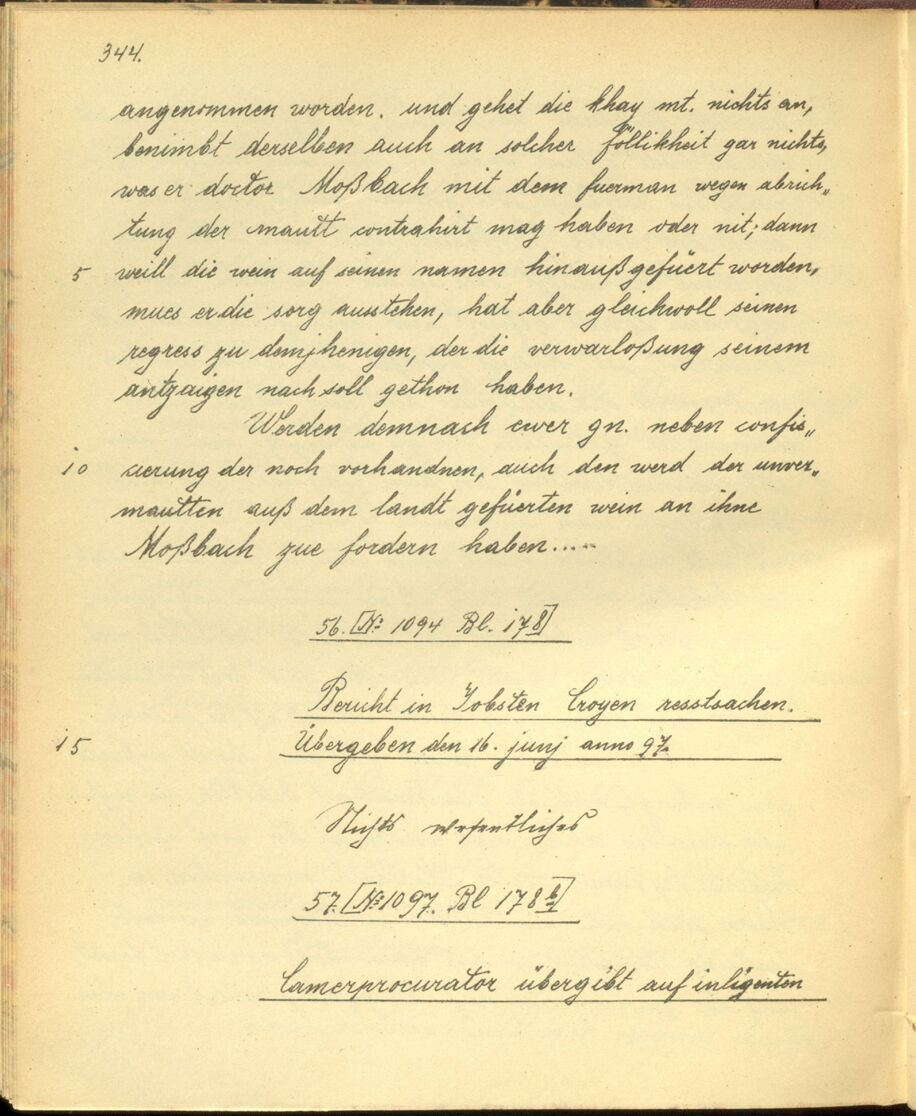 344.
angenommen worden. und gehet die khay mt. nichts an,
benimbt derselben auch an solcher föllikheit gar nichts,
was er doctor Moßbach mit dem fuerman wegen abrich„
tung der mautt contrahirt mag haben oder nit; dann
5 weill die wein auf seinen namen hinaußgefüert worden,
mues er die sorg ausstehen, hat aber gleichwoll seinen
regress zu demjhenigen, der die verwarloßung seinem
antzaigen nach soll gethon haben.
Werden demnach ewer gn. neben confis„
10 cierung der noch vorhandnen, auch den werd der unver„
mautten auß dem landt gefüerten wein an ihne
Moßbach zue fordern haben.....
56. [№ 1094 Bl. 178]
Bericht in Jobsten Croyen resstsachen.
15 Übergeben den 16. junj anno 97.
Nichts wesentliches
57. [№ 1097. Bl 178 b/1]
Camerprocurator übergibt auf inligenten